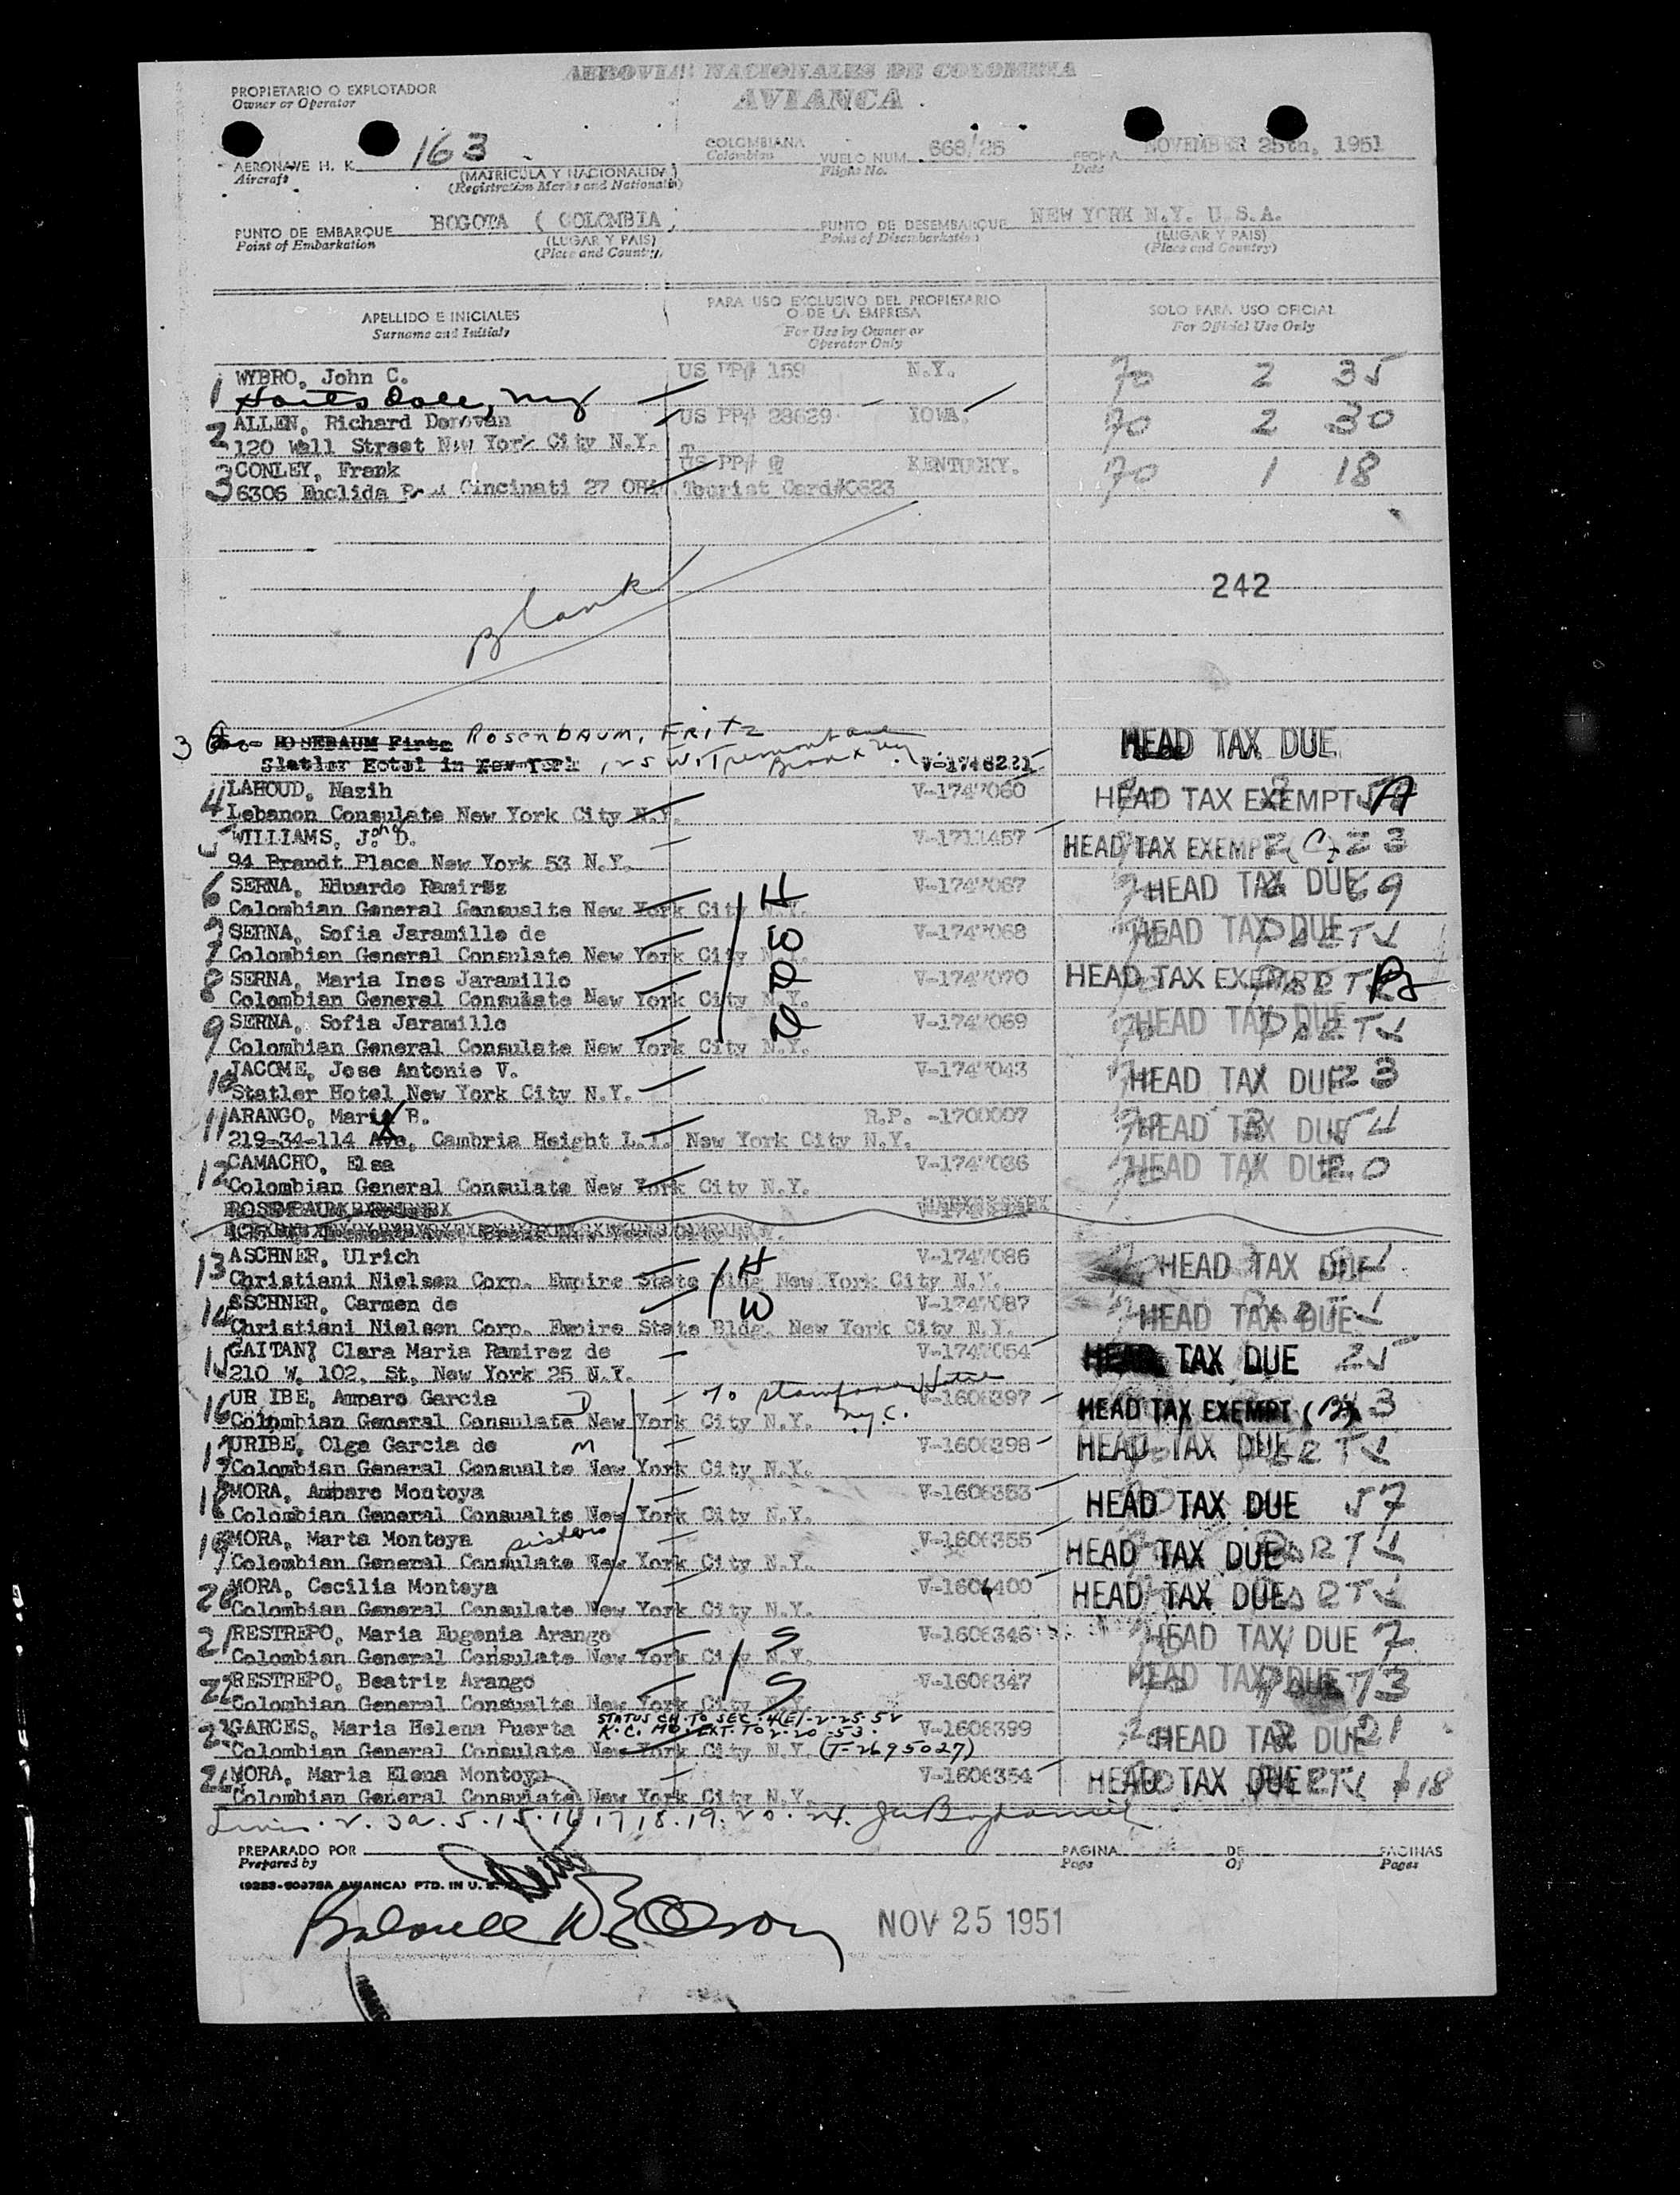 AEROVIAS NACIONALES DE COLOMBIA
AVIANCA
PROPIETARIO O EXPLOTADOR
Owner or Operator
AERONAVE H. K. 163 COLOMBIANA VUELO NUM. 668/25 FECHA NOVEMBER 25th. 1951
Aircraft (MATRICULA Y NACIONALIDAD) Colombian Flight No. Date
(Registration Marks and Nationality)
PUNTO DE EMBARQUE BOGOTA ( COLOMBIA ) PUNTO DE DESEMBARQUE NEW YORK N.Y. U.S.A.
Point of Embarkation (LUGAR Y PAIS) Point of Disembarkation (LUGAR Y PAIS)
(Place and Country) (Place and Country)
APELLIDO E INICIALES PARA USO EXCLUSIVO DEL PROPIETARIO O DE LA EMPRESA SOLO PARA USO OFICIAL
Surname and Initials For Use by Owner or Operator Only For Official Use Only
1 WYBRO, John C. US PP# 159 N.Y. 70 2 35
Hartsdale, NY
2 ALLEN, Richard Donovan US PP# 28629 IOWA. 70 2 30
120 Wall Street New York City N.Y.
3 CONLEY, Frank US PP# KENTUCKY. 70 1 18
6306 Euclida Cincinati 27 Tourist Card#0623
Blank
242
3 ROSEBAUM Rosenbaum, Fritz HEAD TAX DUE
Statler Hotel in New York, 25 W. Tremont ave Bronx NY V-1746221
4 LAHOUD, Nazih V-1747060 HEAD TAX EXEMPT A
Lebanon Consulate New York City N.Y.
5 WILLIAMS, John D. V-1711457 HEAD TAX EXEMPT (C) 23
94 Brandt Place New York 53 N.Y.
6 SERNA, Eduardo Ramirez H V-1747067 HEAD TAX DUE 69
Colombian General Consualte New York City N.Y.
7 SERNA, Sofia Jaramillo de W V-1747068 HEAD TAX DUE
Colombian General Consulate New York City N.Y.
8 SERNA, Maria Ines Jaramillo D V-1747070 HEAD TAX EXEMPT B
Colombian General Consulate New York City N.Y.
9 SERNA, Sofia Jaramillo D V-1747069 HEAD TAX DUE
Colombian General Consulate New York City N.Y.
10 JACOME, Jose Antonio V. V-1747043 HEAD TAX DUE 23
Statler Hotel New York City N.Y.
11 ARANGO, Maria B. R.P. -1700007 HEAD TAX DUE 54
219-34-114 Ave, Cambria Height L.I. New York City N.Y.
12 CAMACHO, Elsa V-1747036 HEAD TAX DUE 20
Colombian General Consulate New York City N.Y.
13 ASCHNER, Ulrich H V-1747086 HEAD TAX DUE
Christiani Nielsen Corp. Empire State Bldg New York City N.Y.
14 ASCHNER, Carmen de W V-1747087 HEAD TAX DUE
Christiani Nielsen Corp. Empire State Bldg. New York City N.Y.
15 GAITAN, Clara Maria Ramirez de V-1747054 HEAD TAX DUE 25
210 W. 102. St. New York 25 N.Y.
16 URIBE, Amparo Garcia D To Hotel N.Y.C. V-1606397 HEAD TAX EXEMPT 3
Colombian General Consulate New York City N.Y.
17 URIBE, Olga Garcia de M V-1606398 HEAD TAX DUE
Colombian General Consualte New York City N.Y.
18 MORA, Amparo Montoya V-1606353 HEAD TAX DUE 57
Colombian General Consualte New York City N.Y.
19 MORA, Marta Montoya sisters V-1606355 HEAD TAX DUE
Colombian General Consulate New York City N.Y.
20 MORA, Cecilia Montoya V-1606400 HEAD TAX DUE
Colombian General Consulate New York City N.Y.
21 RESTREPO, Maria Eugenia Arango S V-1606346 HEAD TAX DUE 7
Colombian General Consulate New York City N.Y.
22 RESTREPO, Beatriz Arango S V-1606347 HEAD TAX DUE 73
Colombian General Consualte New York City N.Y.
STATUS CH. TO SEC. 4(E)-2-25-52
23 GARCES, Maria Helena Puerta K.C. MO. EXT. TO 2-20-53. V-1606399 HEAD TAX DUE 21
Colombian General Consulate New York City N.Y. (T-2695027)
24 MORA, Maria Elena Montoya V-1606354 HEAD TAX DUE $18
Colombian General Consulate New York City N.Y.
2. 3a. 5. 15. 16 17 18. 19. 20. 24.
PREPARADO POR PAGINA DE PAGINAS
Prepared by Page Of Pages
(9253-60378A AVIANCA) PTD. IN U. S.
NOV 25 1951